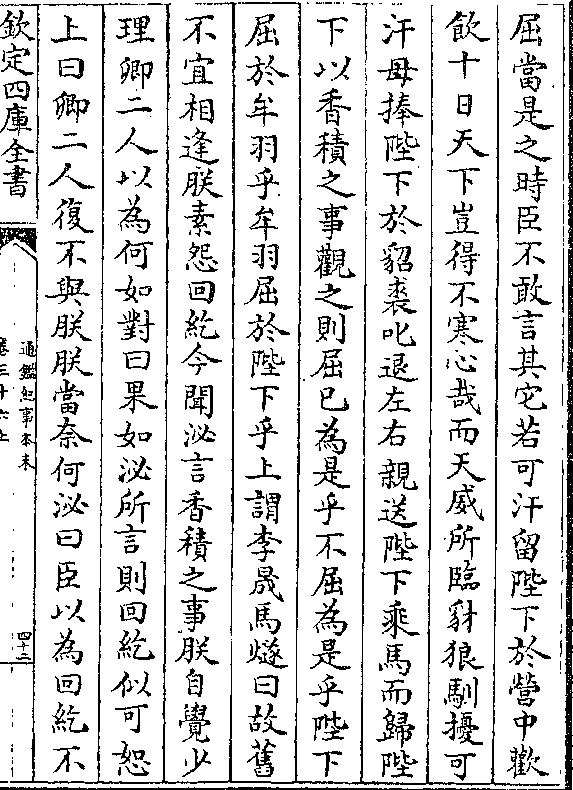 屈當是之時臣不敢言其它若可汗留陛下於營中歡
飲十日天下豈得不寒心哉而天威所臨豺狼馴擾可
汗母捧陛下於貂裘叱退左右親送陛下乘馬而歸陛
下以香積之事觀之則屈己為是乎不屈為是乎陛下
屈於牟羽乎牟羽屈於陛下乎上謂李晟馬燧曰故舊
不宜相逢朕素怨回紇今聞泌言香積之事朕自覺少
理卿二人以為何如對曰果如泌所言則回紇似可恕
上曰卿二人復不與朕朕當奈何泌曰臣以為回紇不
欽定四庫全書
通鑑紀事本末
卷三十六上
四十二